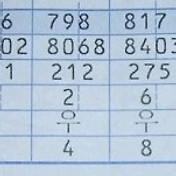 6 798 817
02 8068 8403
1 212 275
2 6
0 0
1 1
4 8